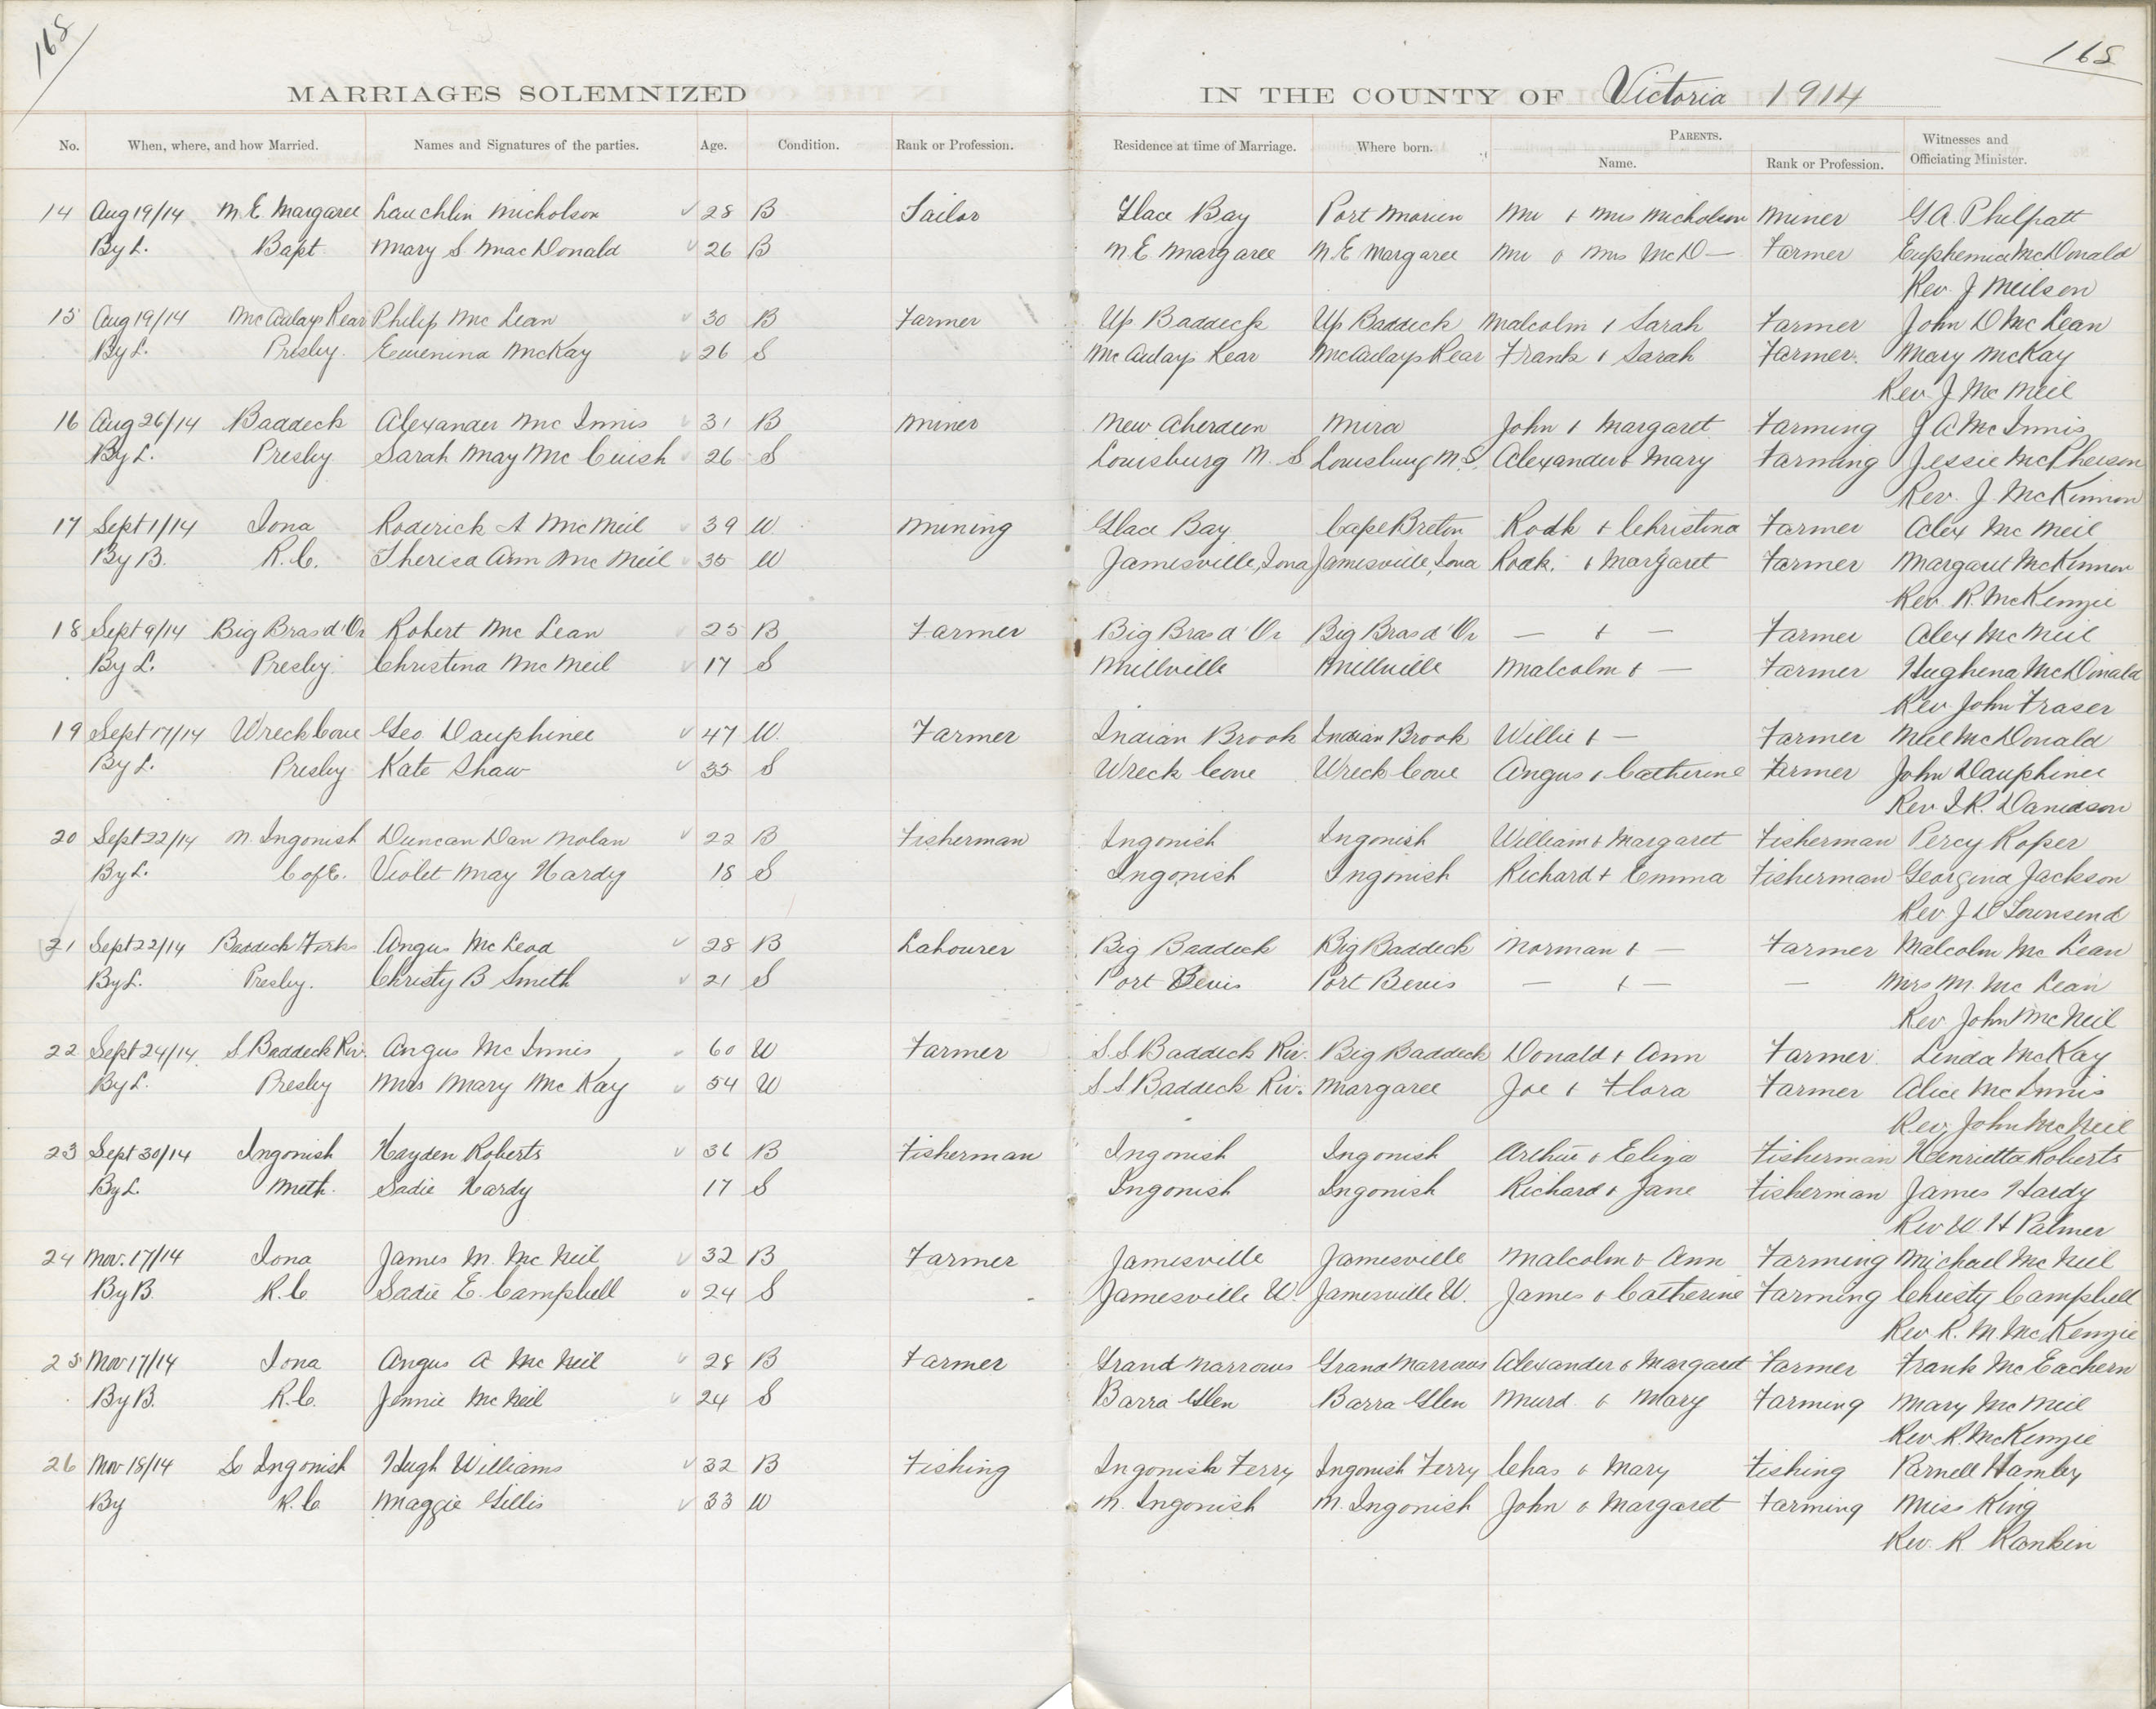 168
168
MARRIAGES SOLEMNIZED IN THE COUNTY OF Victoria 1914
No. When, where, and how Married. Names and Signatures of the parties. Age. Condition. Rank or Profession. Residence at time of Marriage. Where born. PARENTS. Name. Rank or Profession. Witnesses and Officiating Minister.
14 Aug 19/14 N.E. Margaree Lauchlin Nicholson 28 B Tailor Glace Bay Port Morien Mr & Mrs Nicholson Miner G A. Philpatt
By L. Bapt Mary S. MacDonald 26 B N.E Margaree N.E Margaree Mr & Mrs McD— Farmer Euphemia McDonald
Rev. J Neilson
15 Aug 19/14 McAulays Rear Philip McLean 30 B Farmer Up Baddeck Up Baddeck Malcolm & Sarah Farmer John D McLean
By L. Presby. Ewenina McKay 26 S McAulays Rear McAulays Rear Frank & Sarah Farmer. Mary McKay
Rev. J McNeil
16 Aug 26/14 Baddeck Alexander McInnis 31 B Miner New Aberdeen Mira John & Margaret Farming J A McInnis
By L. Presby Sarah May McCuish 26 S Louisburg N.S Louisburg N.S. Alexander & Mary Farming Jessie McPherson
Rev. J. McKinnon
17 Sept 1/14 Iona Roderick A McNeil 39 W. Mining Glace Bay Cape Breton Rodk & Christina Farmer Alex McNeil
By B. R.C. Theresa Ann McNeil 35 W Jamesville, Iona Jamesville, Iona Rodk. & Margaret Farmer Margaret McKinnon
Rev. R. McKenzie
18 Sept 9/14 Big Bras d'Or Robert McLean 25 B Farmer Big Bras d'Or Big Bras d'Or — & — Farmer Alex McNeil
By L. Presby. Christina McNeil 17 S Millville Millville Malcolm & — Farmer Hughena McDonald
Rev John Fraser
19 Sept 17/14 Wreck Cove Geo Dauphinee 47 W. Farmer Indian Brook Indian Brook Willie & — Farmer Neil McDonald
By L. Presby Kate Shaw 35 S Wreck Cove Wreck Cove Angus & Catherine Farmer John Dauphinee
Rev I R. Davidson
20 Sept 22/14 N. Ingonish Duncan Dan Nolan 22 B Fisherman Ingonish Ingonish William & Margaret Fisherman Percy Roper
By L. C of E. Violet May Hardy 18 S Ingonish Ingonish Richard & Emma Fisherman Georgina Jackson
Rev J D Townsend
21 Sept 22/14 Baddeck Forks Angus McLeod 28 B Labourer Big Baddeck Big Baddeck Norman & — Farmer Malcolm McLean
By L. Presby. Christy B Smith 21 S Port Bevis Port Bevis — & — — Mrs M. McLean
Rev John McNeil
22 Sept 24/14 S. Baddeck Riv. Angus McInnis 60 W Farmer S.S Baddeck Riv. Big Baddeck Donald & Ann Farmer. Linda McKay
By L. Presby Mrs Mary McKay 54 W S S Baddeck Riv. Margaree Joe & Flora Farmer Alice McInnis
Rev. John McNeil
23 Sept 30/14 Ingonish Hayden Roberts 36 B Fisherman Ingonish Ingonish Arthur & Eliza Fisherman Henrietta Roberts
By L. Meth. Sadie Hardy 17 S Ingonish Ingonish Richard & Jane Fisherman James Hardy
Rev W H Palmer
24 Nov. 17/14 Iona James M. McNeil 32 B Farmer Jamesville Jamesville Malcolm & Ann Farming Michael McNeil
By B. R.C Sadie E. Campbell 24 S Jamesville W. Jamesville W. James & Catherine Farming Christy Campbell
Rev. R. M McKenzie
25 Nov 17/14 Iona Angus A McNeil 28 B Farmer Grand Narrows Grand Narrows Alexander & Margaret Farmer Frank McEachern
By B. R.C. Jennie McNeil 24 S Barra Glen Barra Glen Murd. & Mary Farming Mary McNeil
Rev. R. McKenzie
26 Nov 18/14 So Ingonish Hugh Williams 32 B Fishing Ingonish Ferry Ingonish Ferry Chas & Mary Fishing Parnell Hamley
By R.C Maggie Gillis 33 W N. Ingonish N. Ingonish John & Margaret Farming Miss King
Rev. R. Rankin